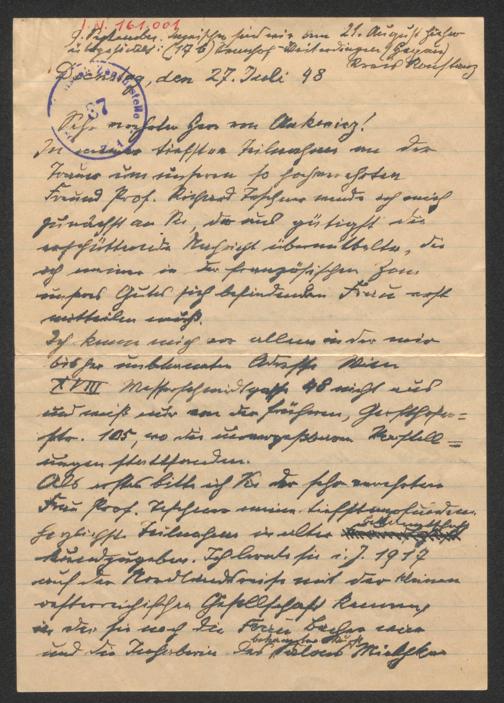 I. N. 161,001
9. September. Inzwischen sind wir am 21. August hieher
übersiedelt: (17 b) Weiterdingen
Kreis Konstanz
Dienstag, den 27. Juli 48
87
Sehr verehrter Herr von
In meiner tiefsten Teilnahme an der
Trauer um unseren so hochverehrten
Freund Prof. Richard Teschner wende ich mich
zunächst an Sie, der uns gütigst die
erschütternde Nachricht übermittelte, die
ich meiner in der französischen Zone
unseres Gutes sich befindenden Frau erst
mitteilen muß.
Ich kenne mich vor allem in der mir
bisher unbekannten Adresse Wien
XVIII Messerschmidtgasse 48 nicht aus
und weiß nur von der früheren, Gersthofer=
str. 105, wo die unvergeßbaren Vorstell=
ungen stattfanden.
Als erstes bitte ich Sie der sehr verehrten
Frau Prof. Teschner meine tiefstempfundene
herzlichste Teilnahme in alter
kundzugeben. Ich lernte sie i. J. 1917
auf der Nordlandreise mit der kleinen
österreichischen Gesellschaft kennen,
in der sie noch die Frau Bacher war
und die Inhaberin des Salons